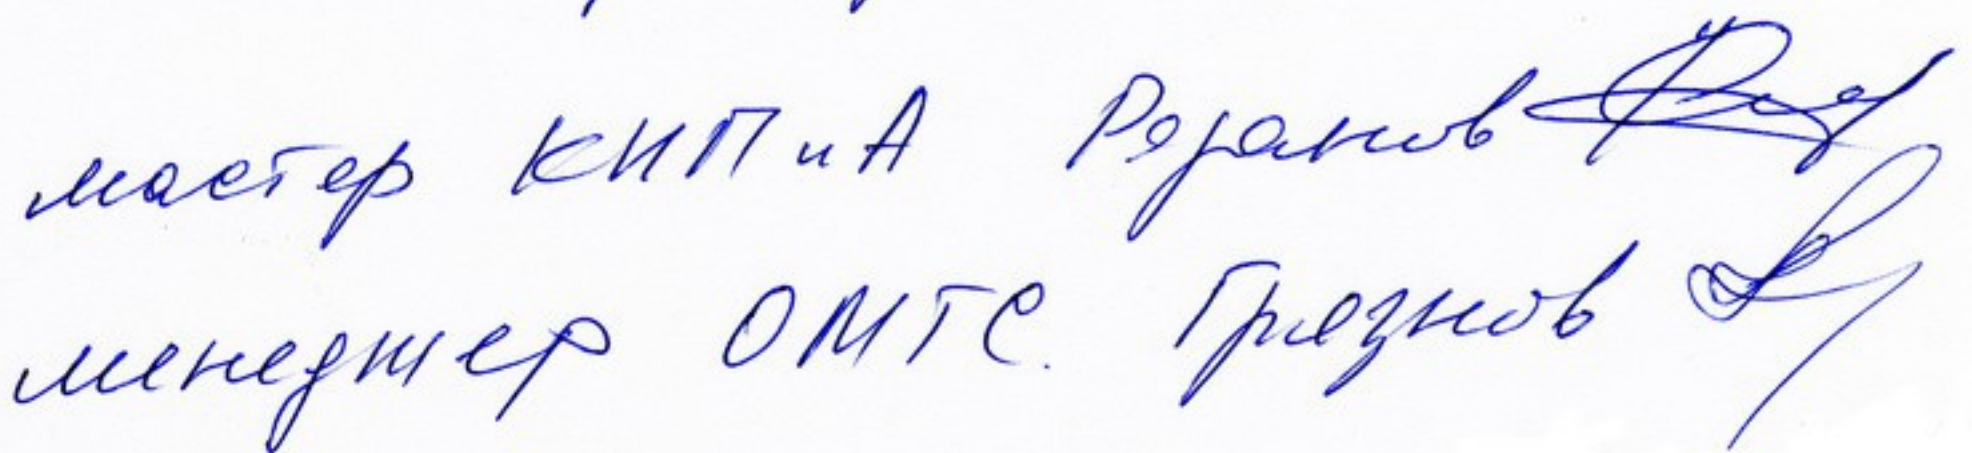 мастер КИПиА Резанов
менеджер ОМТС. Грязнов